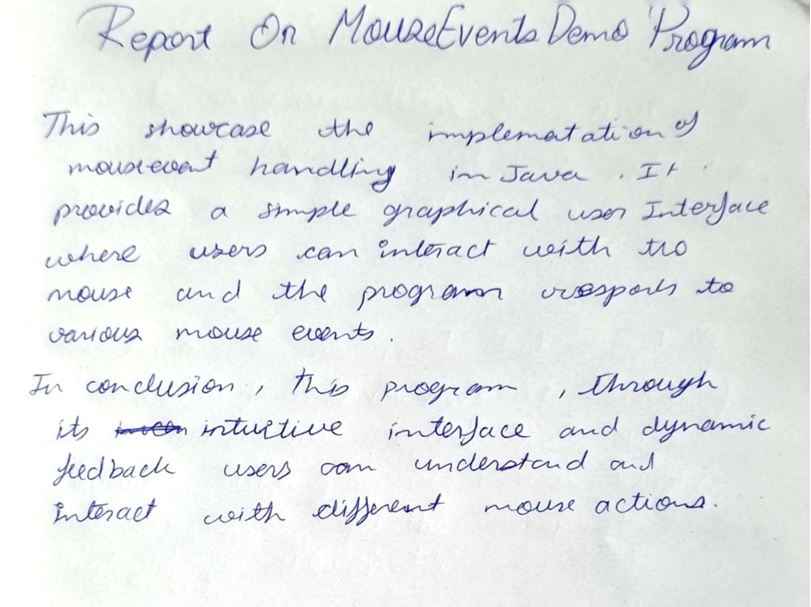 Report On MouseEventsDemo Program
This showcase the implematation of
mouseevent handling in Java. It
provides a simple graphical user Interface
where users can interact with the
mouse and the program responds to
various mouse events.
In conclusion, this program, through
its intuitive interface and dynamic
feedback users can understand and
interact with different mouse actions.